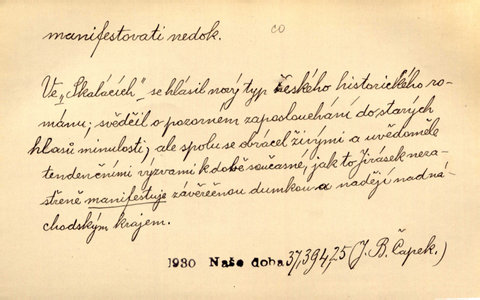 manifestovati nedok.
co
Ve „Skalácích" se hlásil nový typ českého historického ro-
mánu; svědčil o pozorném zaposlouchání do starých
hlasů minulosti, ale spolu se obracel živými a uvědoměle
tendenčními výzvami k době současné, jak to Jirásek neza-
střeně manifestuje závěrečnou dumkou a nadějí nad ná-
chodským krajem.
1930 Naše doba 37,394,25 (J. B. Čapek.)